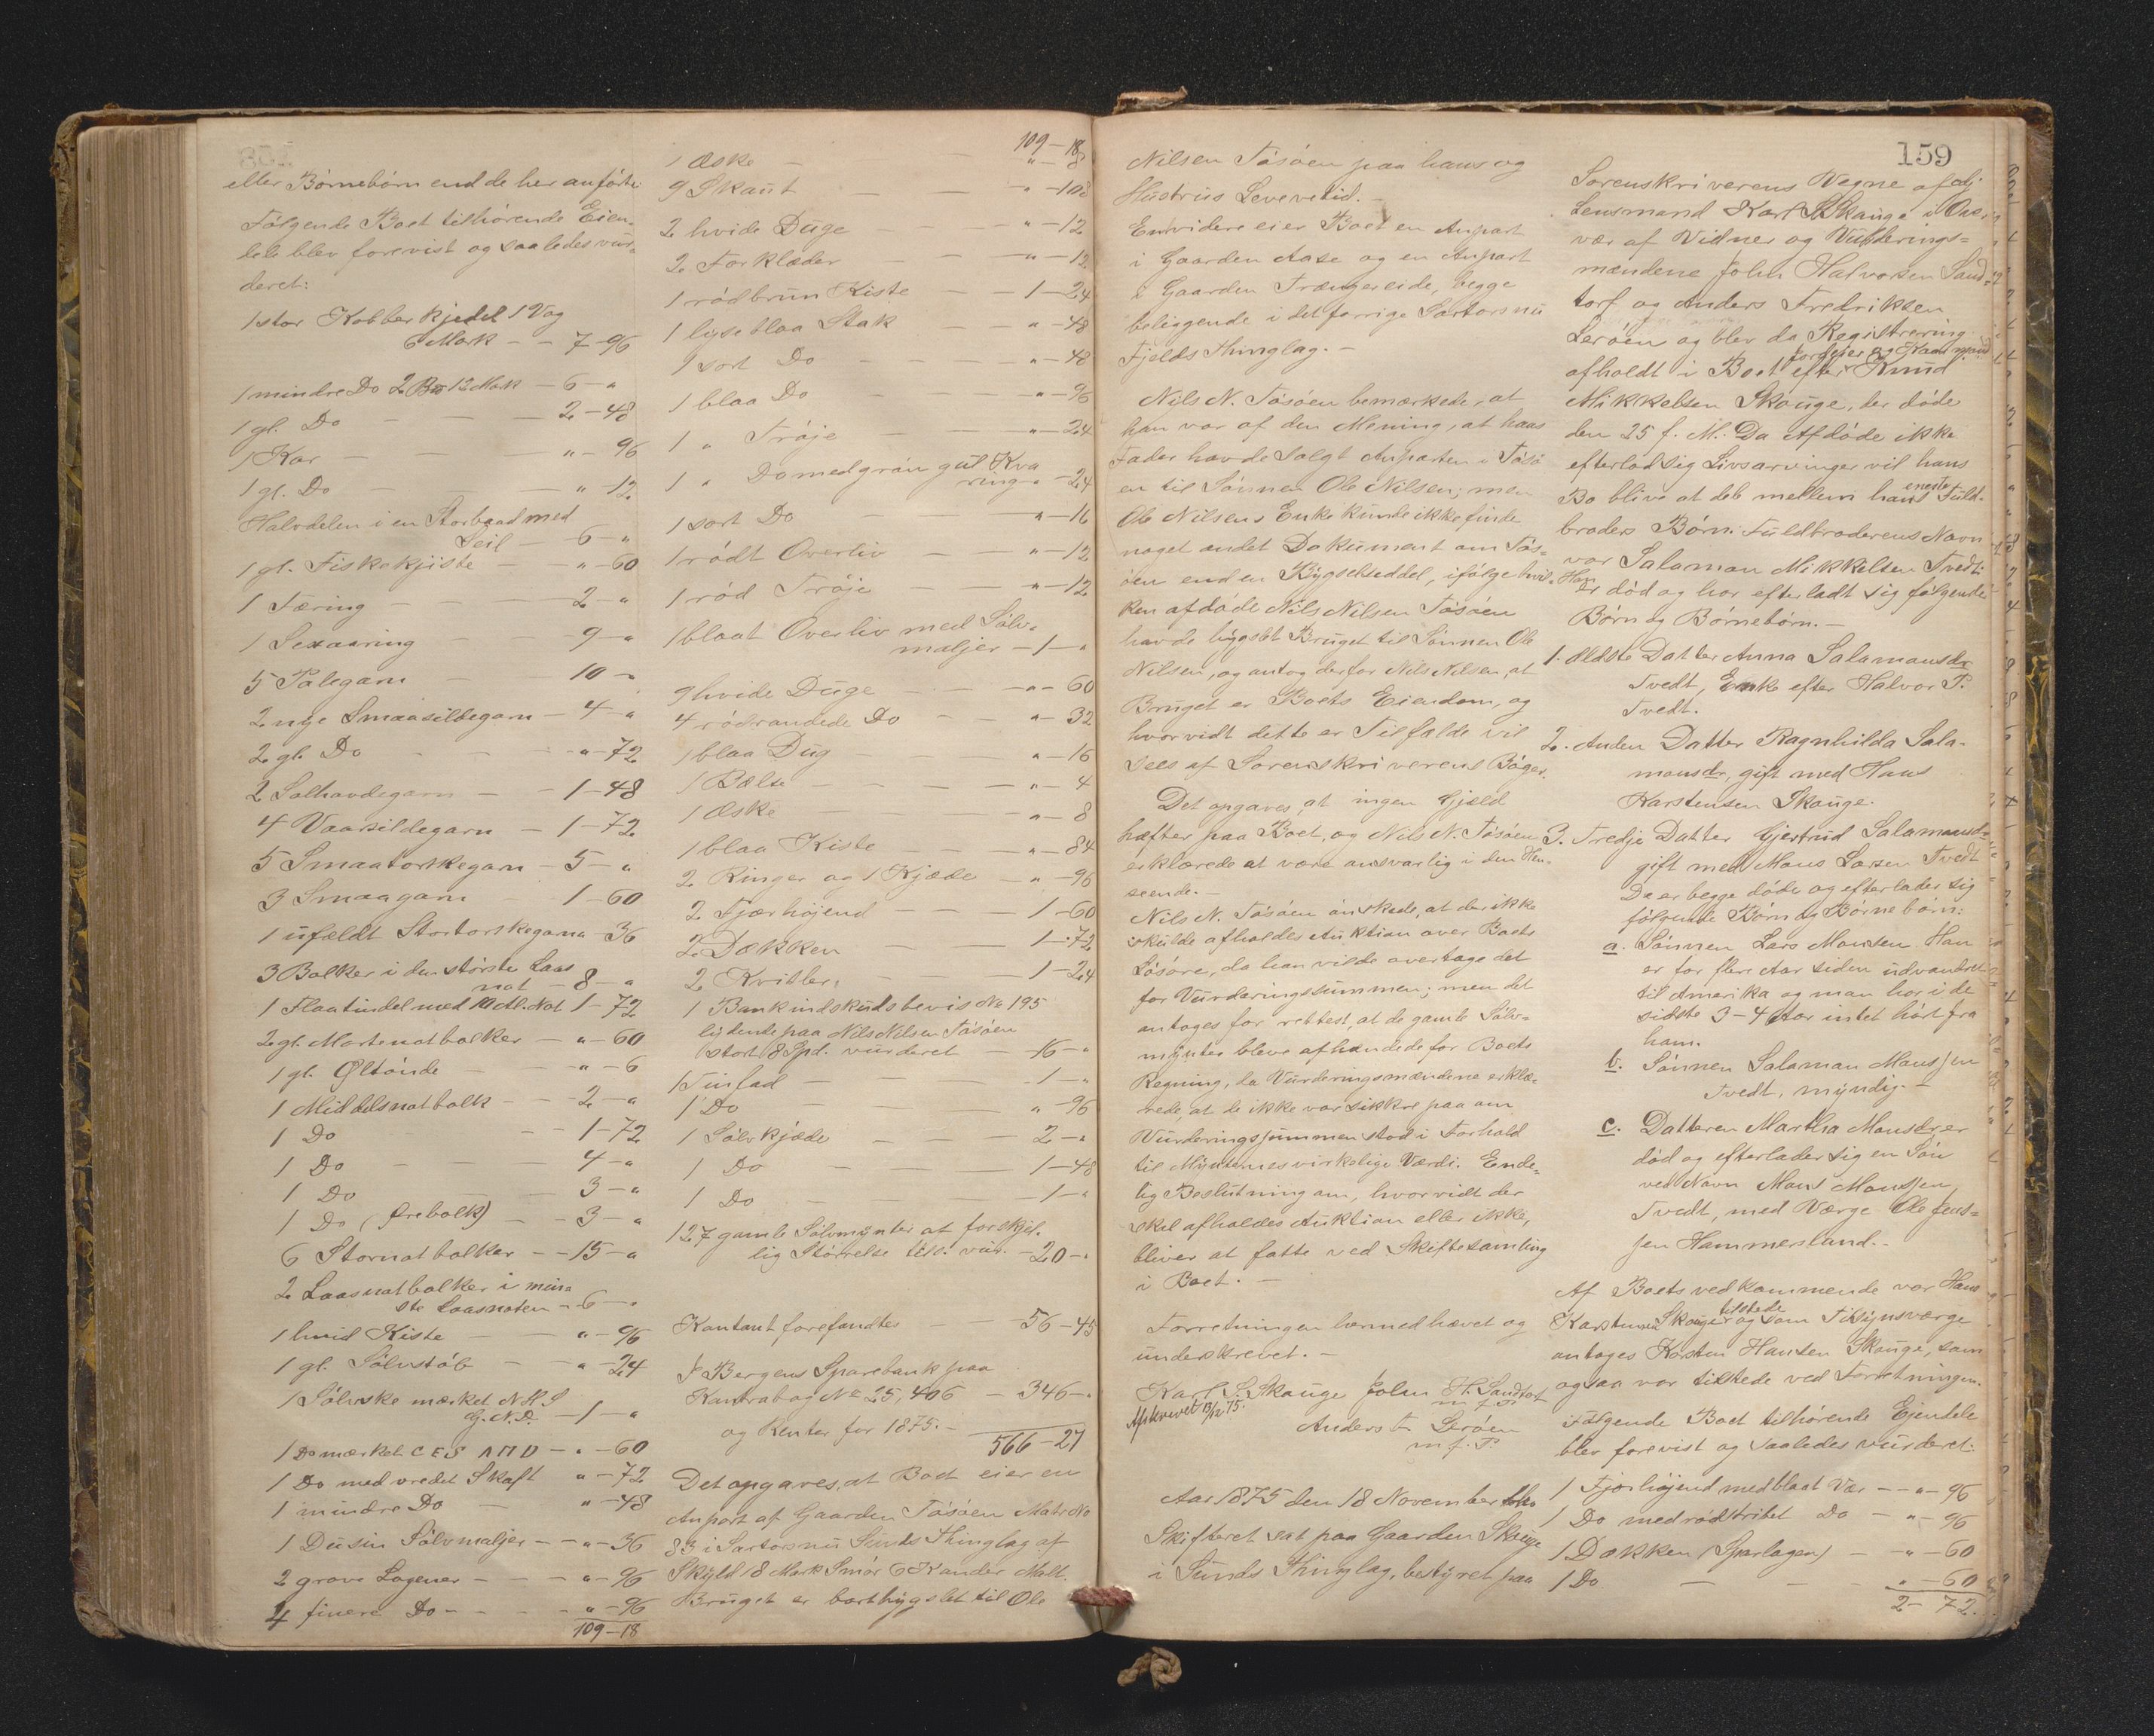 eller Börnebörn end de her anförte
Fölgende Boet tilhörende Eien-
dele blev forevist og saaledes vur-
deret:
1 stor Kobberkjedel 1 Vog
6 Mark - - 7-96
1 mindre Do 2 Bis 12 Mark - 6 - "
1 gl. Do - - 2-48
1 Kar - - " - 96
1 gl. Do - - " - 12
Halvdelen i en Storbaad med
Seil - 6 - "
1 gl. Fiskekjiste - " - 60
1 Færing - - 2 - "
1 Sexaaring - 9 - "
5 Palegarn - 10 - "
2 nye Smaasildegarn - 4 - "
2 gl. Do - - " - 72
2 Solhovdegarn - - 1-48
4 Vaarsildegarn - 1-72
5 Smaatorskegarn - 5 - "
3 Smaagarn 1-60
1 ufældt Stortorskegarn " - 36
3 Bolker i den störste Laas
not - 8 - "
1 Flaatindel med 10 Al. Not 1-72
2 gl. Mortenotbolker - " - 60
1 gl. Øltönde - - " - 6
1 Middelsnotbolk - - 2 - "
1 Do - - 1-72
1 Do - - 4 - "
1 Do - - 3 - "
1 Do (Ørebolk) - - 3 - "
6 Stornotbolker - - 15 - "
2 Laasnotbolker i mind-
ste Laasnoten - 6 - "
1 hvid Kiste - " - 96
1 gl. Sölvstöb - - " - 24
1 Sölvske mærket N.K.S
G.N.D. - 1 - "
1 Do mærket C E S A M D - " - 60
1 Do med vredet Skaft " - 72
1 mindre Do - " - 48
1 Dusin Sölvmaljer - - " - 36
2 grove Lagener - - - " - 96
4 finere Do - - - " - 96
109-18
109-18
1 Æske - - " - 8
9 Skaut - - " - 108
2 hvide Duge - - " - 12
2 Forklæder - - " - 12
1 rödbrun Kiste - - 1-24
1 lyseblaa Stak - - " - 48
1 sort Do - - " - 48
1 blaa Do - - " - 96
1 " Tröje - - " - 24
1 " Do med grön gul Kva
ring - " - 24
1 sort Do - - " - 16
1 rödt Overliv - - " - 12
1 röd Tröje - - " - 12
1 blaat Overliv med Sölv-
maljer - 1 - "
9 hvide Duge - - " - 60
4 rödrandede Do - - " - 32
1 blaa Dug - - " - 16
1 Bælte - - " - 4
1 Æske - - " - 8
1 blaa Kiste - - " - 84
2 Ringer og 1 Kjæde - " - 96
2 Fjærhöjend - - 1-60
2 Dækken - 1-72
2 Kvitler, - - 1-24
1 Bankindskudsbevis No 195
lydende paa Nils Nilsen Tösöen
stort 8 Spd. vurderet - 16 - "
1 Tinfad - - 1 - "
1 Do - - " - 96
1 Sölvkjæde - - 2 - "
1 Do - - 1-48
1 Do - - 1 - "
127 gamle Sölvmynter af forskjel.
lig Störrelse till. vur. - 20 - "
Kontant forefandtes - - 56-45
I Bergens Sparebank paa
Kontrabog No 25,406 - 346 - "
og Renter for 1875. -
566-27
Det opgaves, at Boet eier en
Anpart af Gaarden Tösöen Matr No
83 i Sartors nu Sunds Thinglag af
Skyld 18 Mark Smör 6 Kander Malt.
Bruget er bortbygslet til Ole
Nilsen Tösöen paa hans og
Hustrus Levevetid. -
Endvidere eier Boet en Anpart
i Gaarden Aase og en Anpart
i Gaarden Trængereide, begge
beliggende i det forrige Sartors nu
Fjelds Thinglag. -
Nils N. Tösöen bemærkede, at
han var af den Mening, at hans
Fader havde solgt Anparten i Tösö
en til Sönnen Ole Nilsen; men
Ole Nilsens Enke kunde ikke finde
noget andet Dokument om Tös-
öen end en Bygselseddel, ifölge hvil-
ken afdöde Nils Nilsen Tösöen
havde bygslet Bruget til Sönnen Ole
Nilsen, og antog derfor Nils Nilsen, at
Bruget er Boets Eiendom, og
hvorvidt dette er Tilfælde vil
sees af Sorenskriverens Böger.
Det opgaves, at ingen Gjæld
hæfter paa Boet, og Nils N. Tösöen
erklærede at være ansvarlig i den Hen-
seende. -
Nils N. Tösöen önskede, at der ikke
skulde afholdes Auktion over Boets
Lösöre, da han vilde overtage det
for Vurderingssummen; men det
antoges for rettest, at de gamle Sölv-
mynter bleve afhændede for Boets
Regning, da Vurderingsmændene erklæ-
rede, at de ikke var sikkre paa om
Vurderingssummen stod i Forhold
til Mynternes virkelige Værdi. Ende-
lig Beslutning om, hvorvidt der
skal afholdes Auktion eller ikke,
bliver at fatte ved Skiftesamling
i Boet. -
Forretningen hermed hævet og
underskrevet. -
Karl S. Skauge John H. Sandtorf
m f P
Afskrevet 13/12 75.
Anders F. Leröen
m. f. P.
Aar 1875 den 18 November blev
Skifteret sat paa Gaarden Skauge
i Sunds Thinglag, bestyret paa
159
Sorenskriverens Vegne af
Lensmand Karl S Skauge i Over
vær af Vidner og Vurderings-
mændene John Halvorsen Sand-
torf og Anders Fredriksen
Leröen og blev da Registrering
afholdt i Boet efter Knud
Mikkelsen Skauge, der döde
den 25 f. M. Da Afdöde ikke
efterlod sig Livsarvinger vil hans
Bo blive at dele mellem hans eneste Fuld-
broders Börn. Fuldbroderens Navn
var Salamon Mikkelsen Tvedt. Han
er död og har efterladt sig fölgende
Börn og Börnebörn. -
1. Ældste Datter Anna Salamonsdr
Tvedt, Enke efter Halvor P.
Tvedt.
2. Anden Datter Ragnhilda Sala-
monsdr, gift med Hans
Karstensen Skauge.
3. Tredje Datter Gjertrud Salamonsdr
gift med Mons Larsen Tvedt
De er begge döde og efterlader sig
fölgende Börn og Börnebörn:
a. Sönnen Lars Monsen Han
er for flere Aar siden udvandret
til Amerika og man har i de
sidste 3-4 Aar intet hört fra
ham.
b. Sönnen Salamon Monssen
Tvedt, myndig. -
c. Datteren Martha Monsdr er
död og efterlader sig en Sön
ved Navn Mons Monssen
Tvedt, med Værge Ole Jens-
sen Hammersland. -
Af Boets vedkommende var Hans
Karstensen Skauge tilstede og som Tilsynsværge
antoges Karsten Hansen Skauge, som
ogsaa var tilstede ved Forretningen.
Fölgende Boet tilhörende Ejendele
blev forevist og saaledes vurderet:
1 Fjærhöjend med blaat Vær - - " - 96
1 Do med rödstribet Do - " - 96
1 Dækken (Sparlagen) - - " - 60
1 Do - - " - 60
2-72.